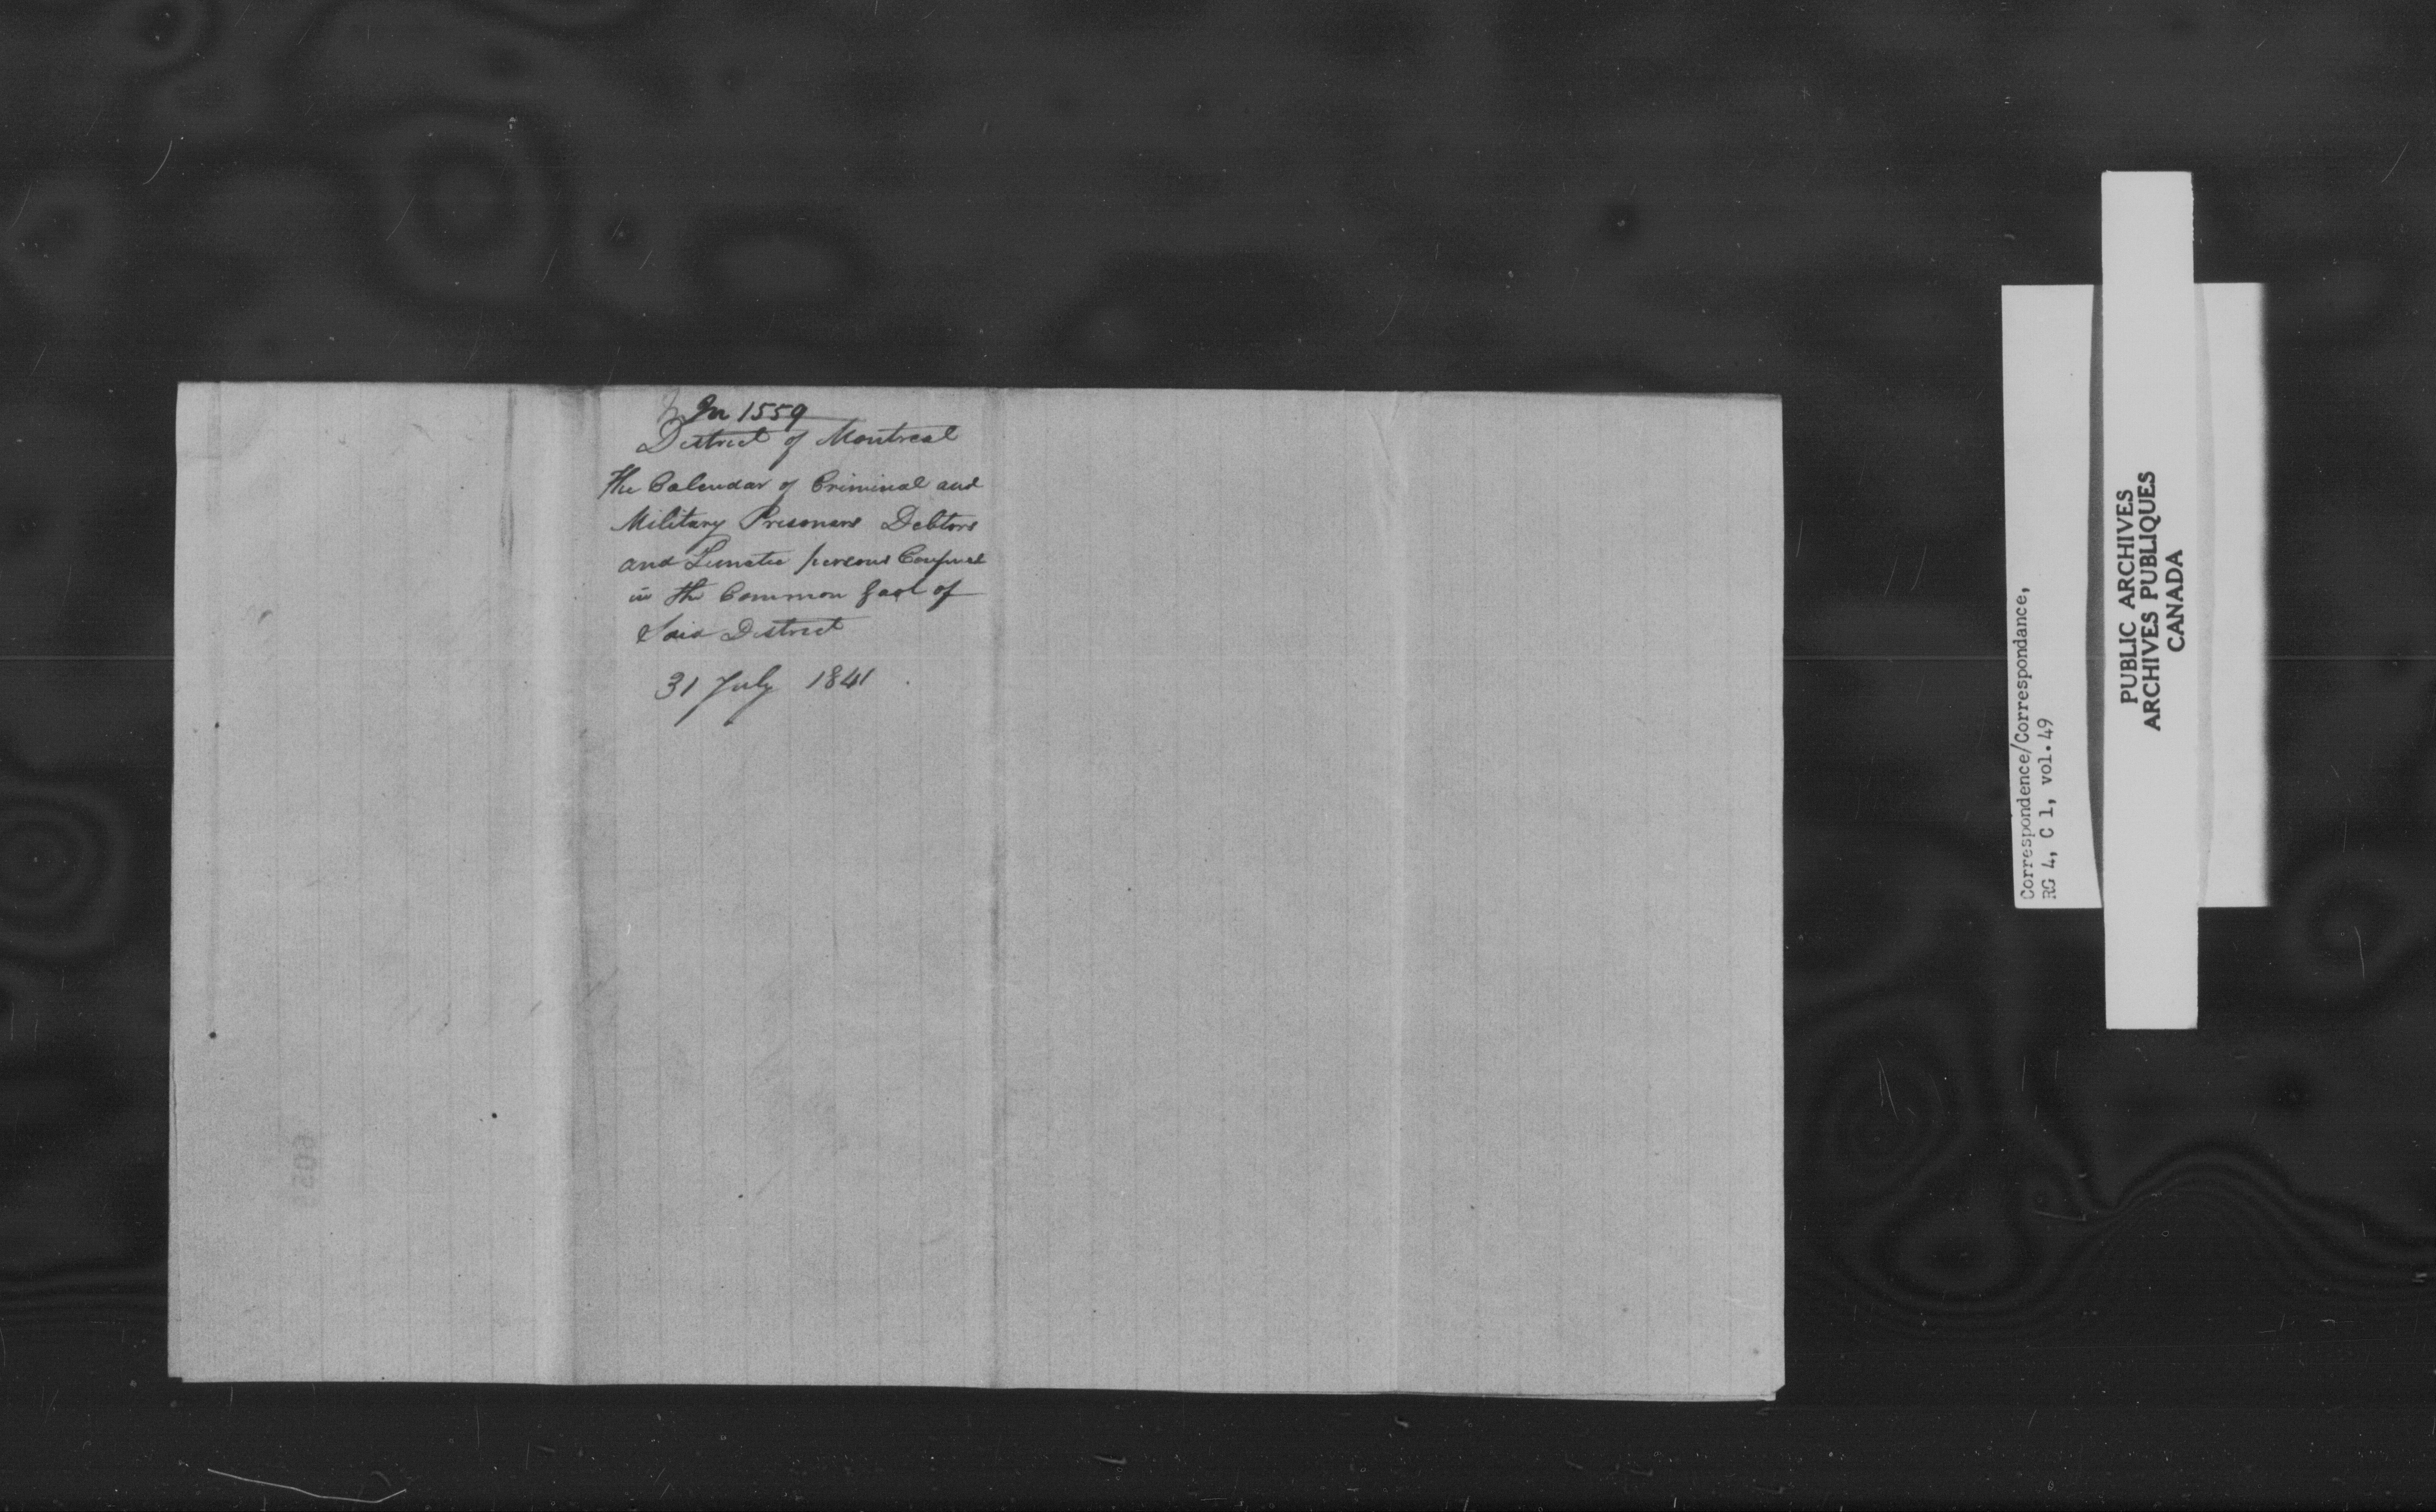 In 1559
District of Montreal
The Calendar of Criminal and
Military Prisoners Debtors
and Lunatic persons Confined
in the Common Gaol of
Said District
31 July 1841
Correspondence/Correspondance,
RG 4, C 1, vol.49
PUBLIC ARCHIVES
ARCHIVES PUBLIQUES
CANADA